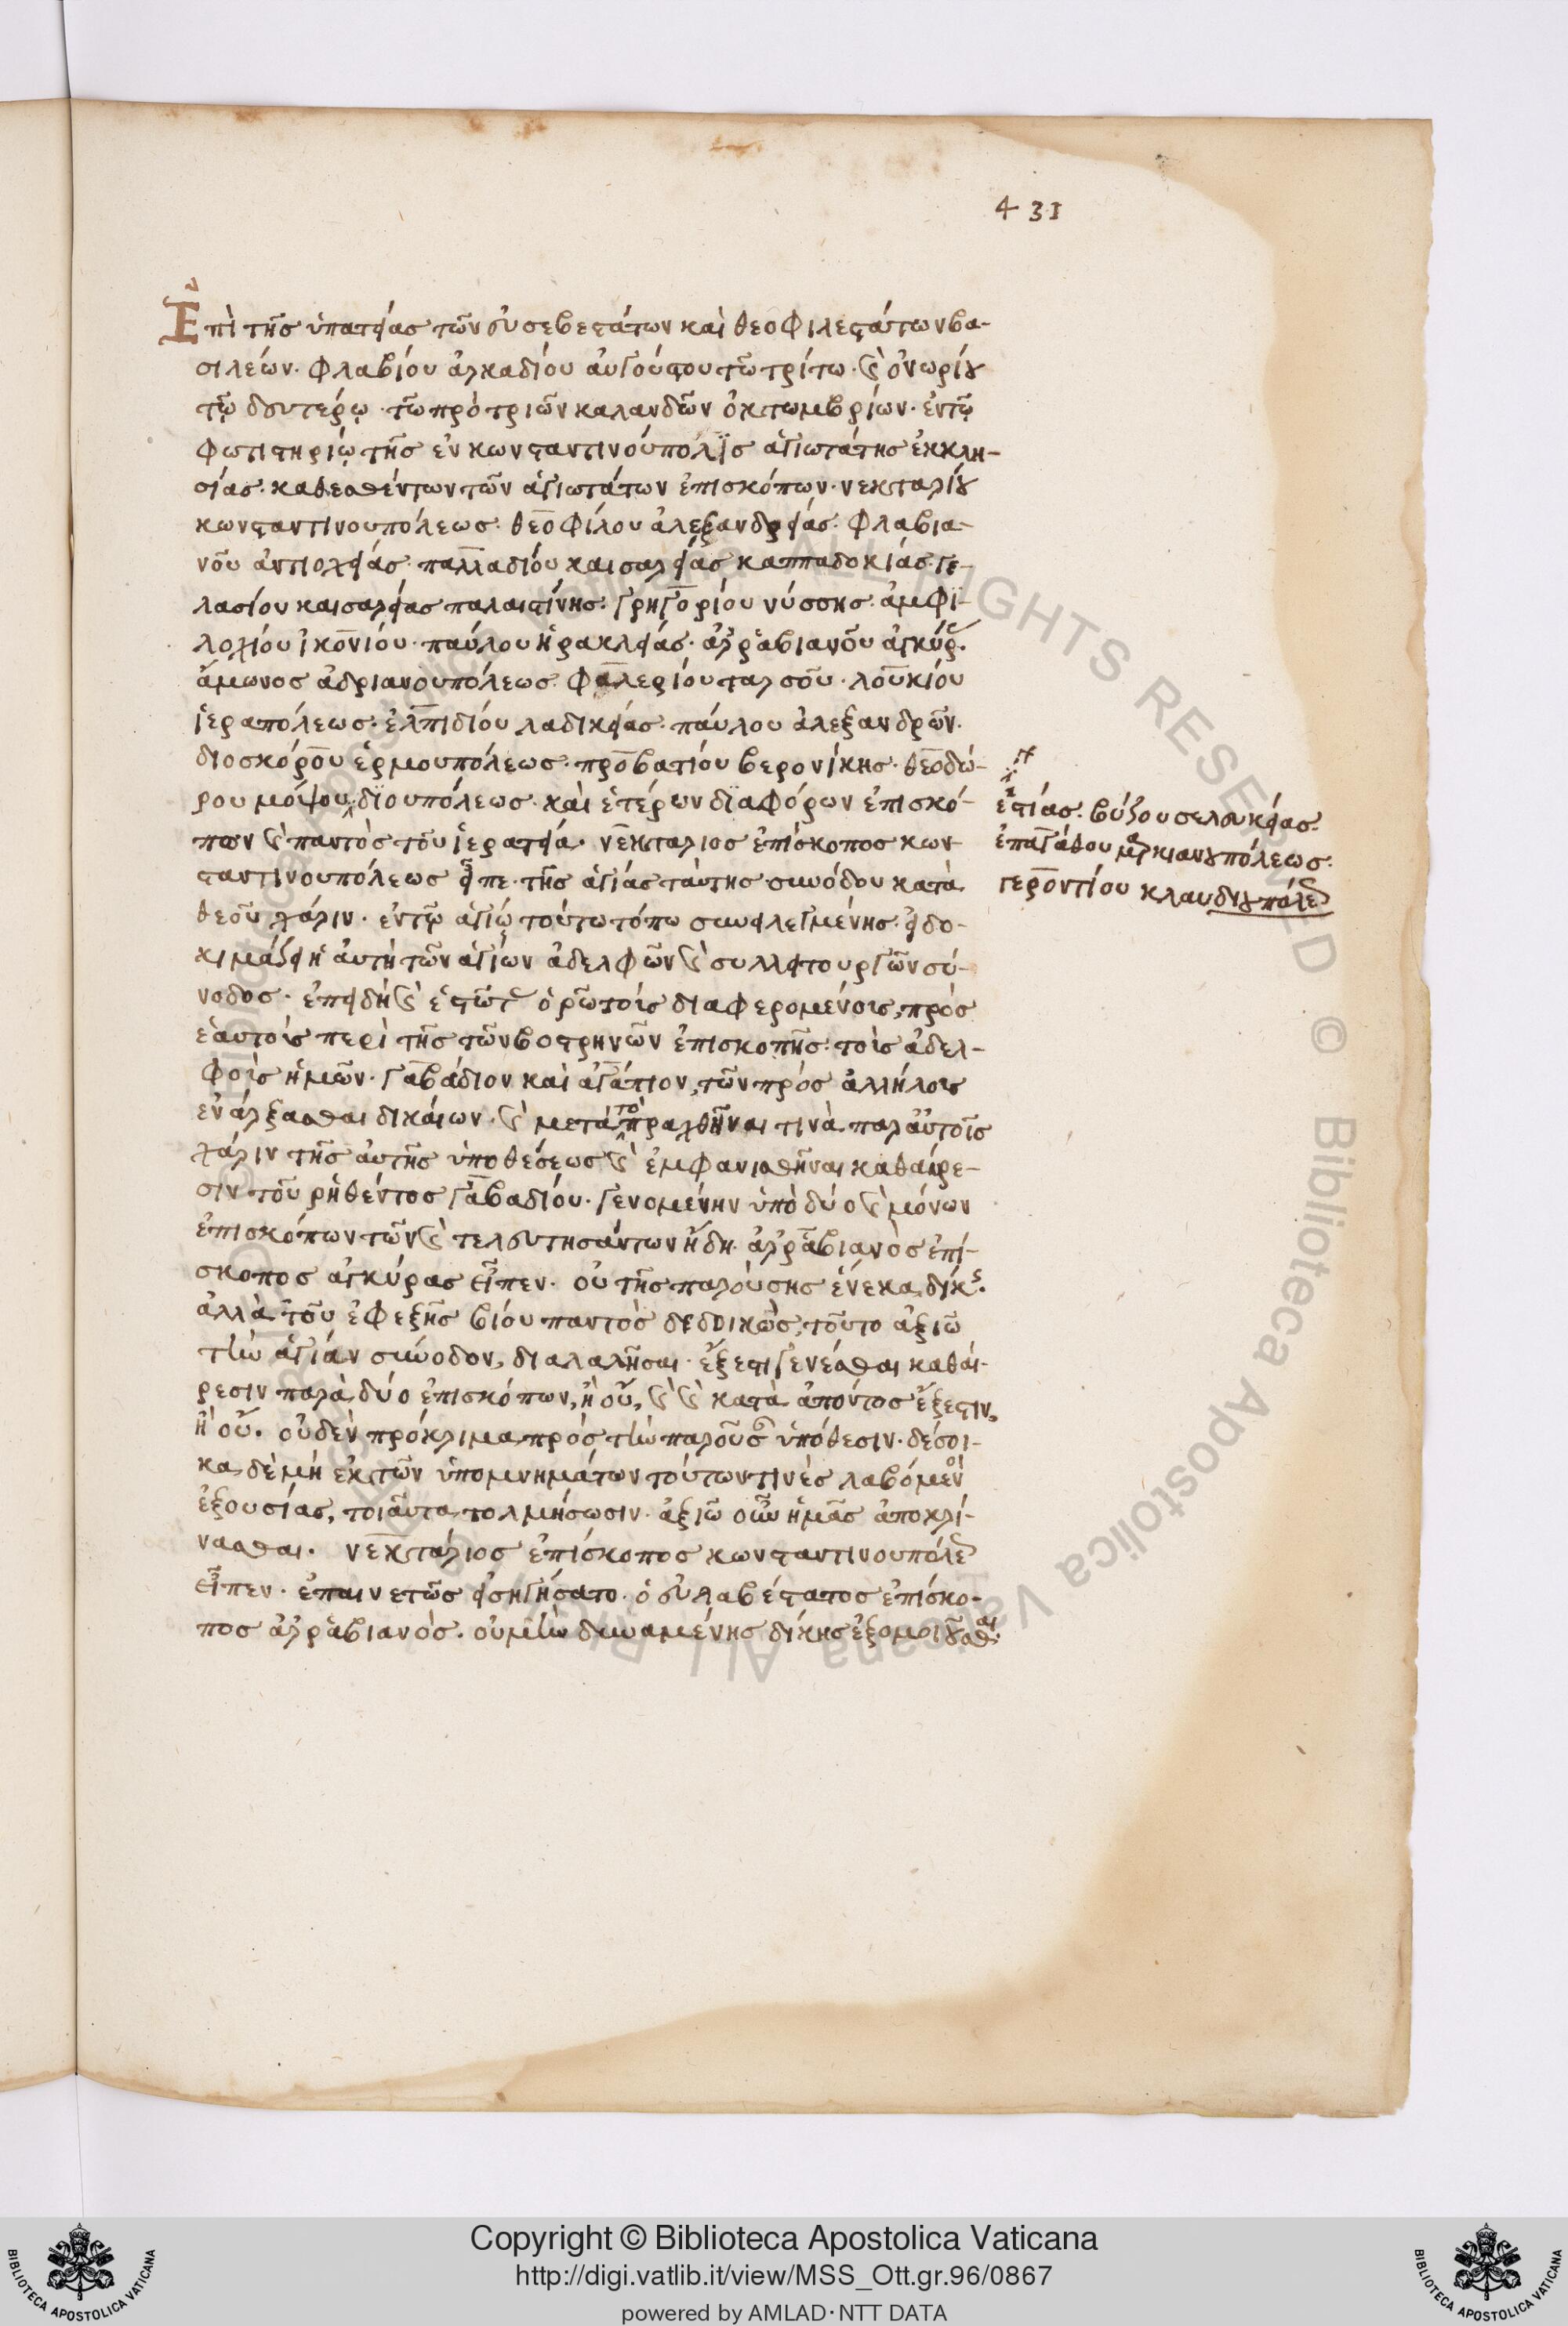 431
Ἐπὶ τῆς ὑπατείας τῶν εὐσεβεστάτων καὶ θεοφιλεστάτων βα-
σιλέων. φλαβίου ἀρκαδίου ἀυγούστου τῶ τρίτω. καὶ ὀνωρίου
τῷ δευτέρῳ. τῶ πρὸ τριῶν καλανδῶν ὀκτωμβρίων. ἐν τῷ
φωτιστηρίῳ τῆς ἐν κωνσταντινούπολϊς ἁγιωτάτης ἐκκλη-
σίας. καθεσθέντων τῶν ἁγιωτάτων ἐπισκόπων. νεκταρίου
κωνσταντινουπόλεως. θεοφίλου ἀλεξανδρείας. φλαβια-
νοῦ ἀντιοχείας. παλλαδίου καισαρείας καππαδοκίας. γε-
λασίου καισαρείας παλαιστίνης. γρηγορίου νύσσης. ἀμφι-
λοχίου ἰκονίου. παύλου ἡρακλείας. ἀῤῥαβιανοῦ ἀγκύρ.
ἄμωνος ἀδριανουπόλεως. φαλερίου ταρσοῦ. λουκίου
ἱεραπόλεως. ἐλπιδίου λαδικείας. παύλου ἀλεξανδρῶν.
διοσκόρου ἑρμουπόλεως. προβατίου βερονίκης. θεοδώ-
ρου μόψου, διουπόλεως. καὶ ἑτέρων διαφόρων ἐπισκό-
πων καὶ παντὸς τοῦ ἱερατεία. νεκταριος ἐπίσκοπος κων
σταντινουπόλεως εἶπε. τῆς ἁγίας ταύτης συνόδου κατὰ
θεοῦ χάριν. ἐν τῷ ἁγίῳ τούτω τόπω συνειλεγμένης. εἰ δο-
κιμάζει ἡ ἀυτὴ τῶν ἁγίων ἀδελφῶν καὶ συλλειτουργῶν σύ-
νοδος. ἐπειδὴ καὶ ἑστῶτ ὁρῶ τοὶς διαφερομένοις, πρὸς
ἑαυτοὶς περὶ τῆς τῶν βοστρηνῶν ἐπισκοπῆς. τοὶς ἀδελ-
φοὶς ἡμῶν. γαβάδιον καὶ ἀγάπιον, τῶν πρὸς ἀλλήλοις
ἐνάρξασθαι δικάιων. καὶ μετὰ τὸ πραχθῆναι τινὰ παρ ἀυτοῖς
χάριν τῆς ἀυτῆς ὑποθέσεως καὶ ἐμφανισθῆναι καθαίρε-
σιν τοῦ ρηθέντος γαβαδίου. γενομένην ὑπὸ δύο καὶ μόνων
ἐπισκόπων τῶν καὶ τελευτησάντων ἤδη. ἀῤῥαβιανὸς ἐπί-
σκοπος ἀγκύρας εἶπεν. οὐ τῆς παρούσης ἕνεκα δίκς.
ἀλλὰ τοῦ ἐφεξῆς βίου παντὸς δεδοικὼς, τοῦτο ἀξιῶ
τὴν ἁγίαν σύνοδον, διαλαλῆσαι. ἔξεστι γενέσθαι καθάι-
ρεσιν παρὰ δύο ἐπισκόπων, ἢ οὔ, καὶ καὶ κατὰ ἀπόντος ἔξεστιν,
ἢ οὔ. οὐδὲν πρόκλιμα, πρὸς τὴν παροῦσ ὑπόθεσιν. δέδοι-
κα δὲ μὴ ἐκ τῶν ὑπομνημάτων τούτων τινὲς λαβόμενοι
ἐξουσίας, τοιαῦτα τολμήσωσιν. ἀξιῶ οὖν ἡμᾶς ἀποκλί-
νασθαι. νεκτάριος ἐπίσκοπος κωνσταντινουπόλε
εἶπεν. ἐπαινετῶς εἰσηγήσατο. ὁ εὐλαβέστατος ἐπίσκο-
πος ἀῤῥαβιανὸς. οὐ μὴν δυναμένης δίκης ἐξομοιοῦσθαι.
ἐστίας. βύζου σελευκείας.
ἐπαγάθου μαρκιανουπόλεως.
γεροντίου κλαυδιουπόλε
Copyright © Biblioteca Apostolica Vaticana
http://digi.vatlib.it/view/MSS_Ott.gr.96/0867
powered by AMLAD·NTT DATA